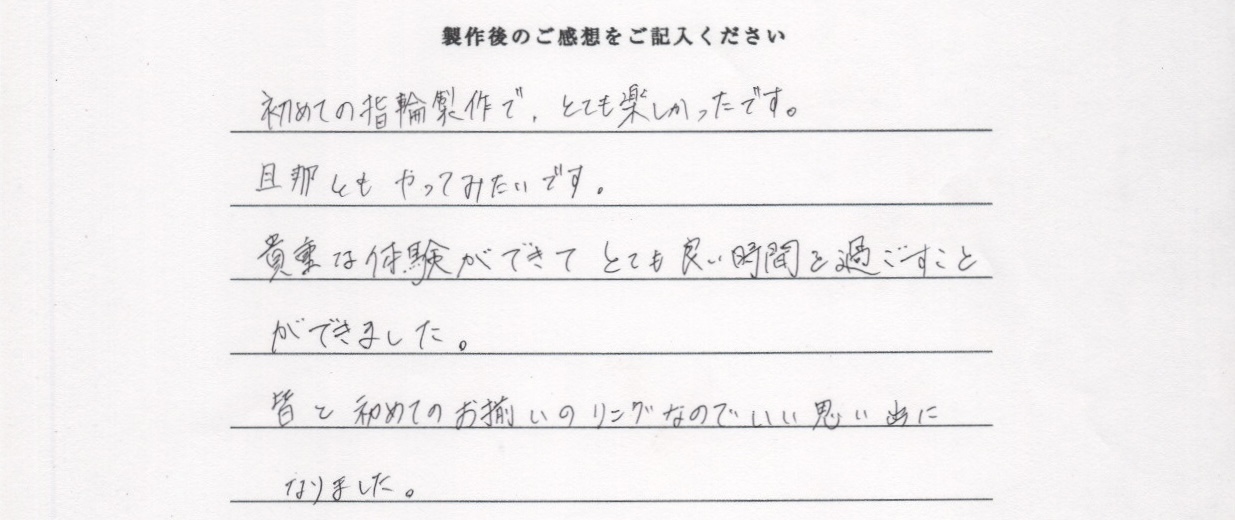 製作後のご感想をご記入ください
初めての指輪製作で、とても楽しかったです。
旦那ともやってみたいです。
貴重な体験ができてとても良い時間を過ごすこと
ができました。
皆と初めてのお揃いのリングなのでいい思い出に
なりました。